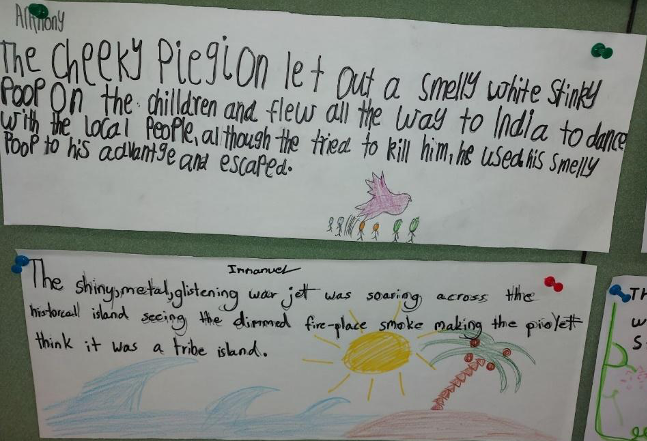 Anthony
The Cheeky Piegion let out a smelly white stinky
Poop on the chilldren and flew all the way to India to dance
with the local People, although the tried to kill him, he used his smelly
Poop to his advantge and escaped.
Immanuel
The shiny, metal, glistening war jet was soaring across the
historcall island seeing the dimmed fire-place smoke making the pioleft
think it was a tribe island.
TH
w
S